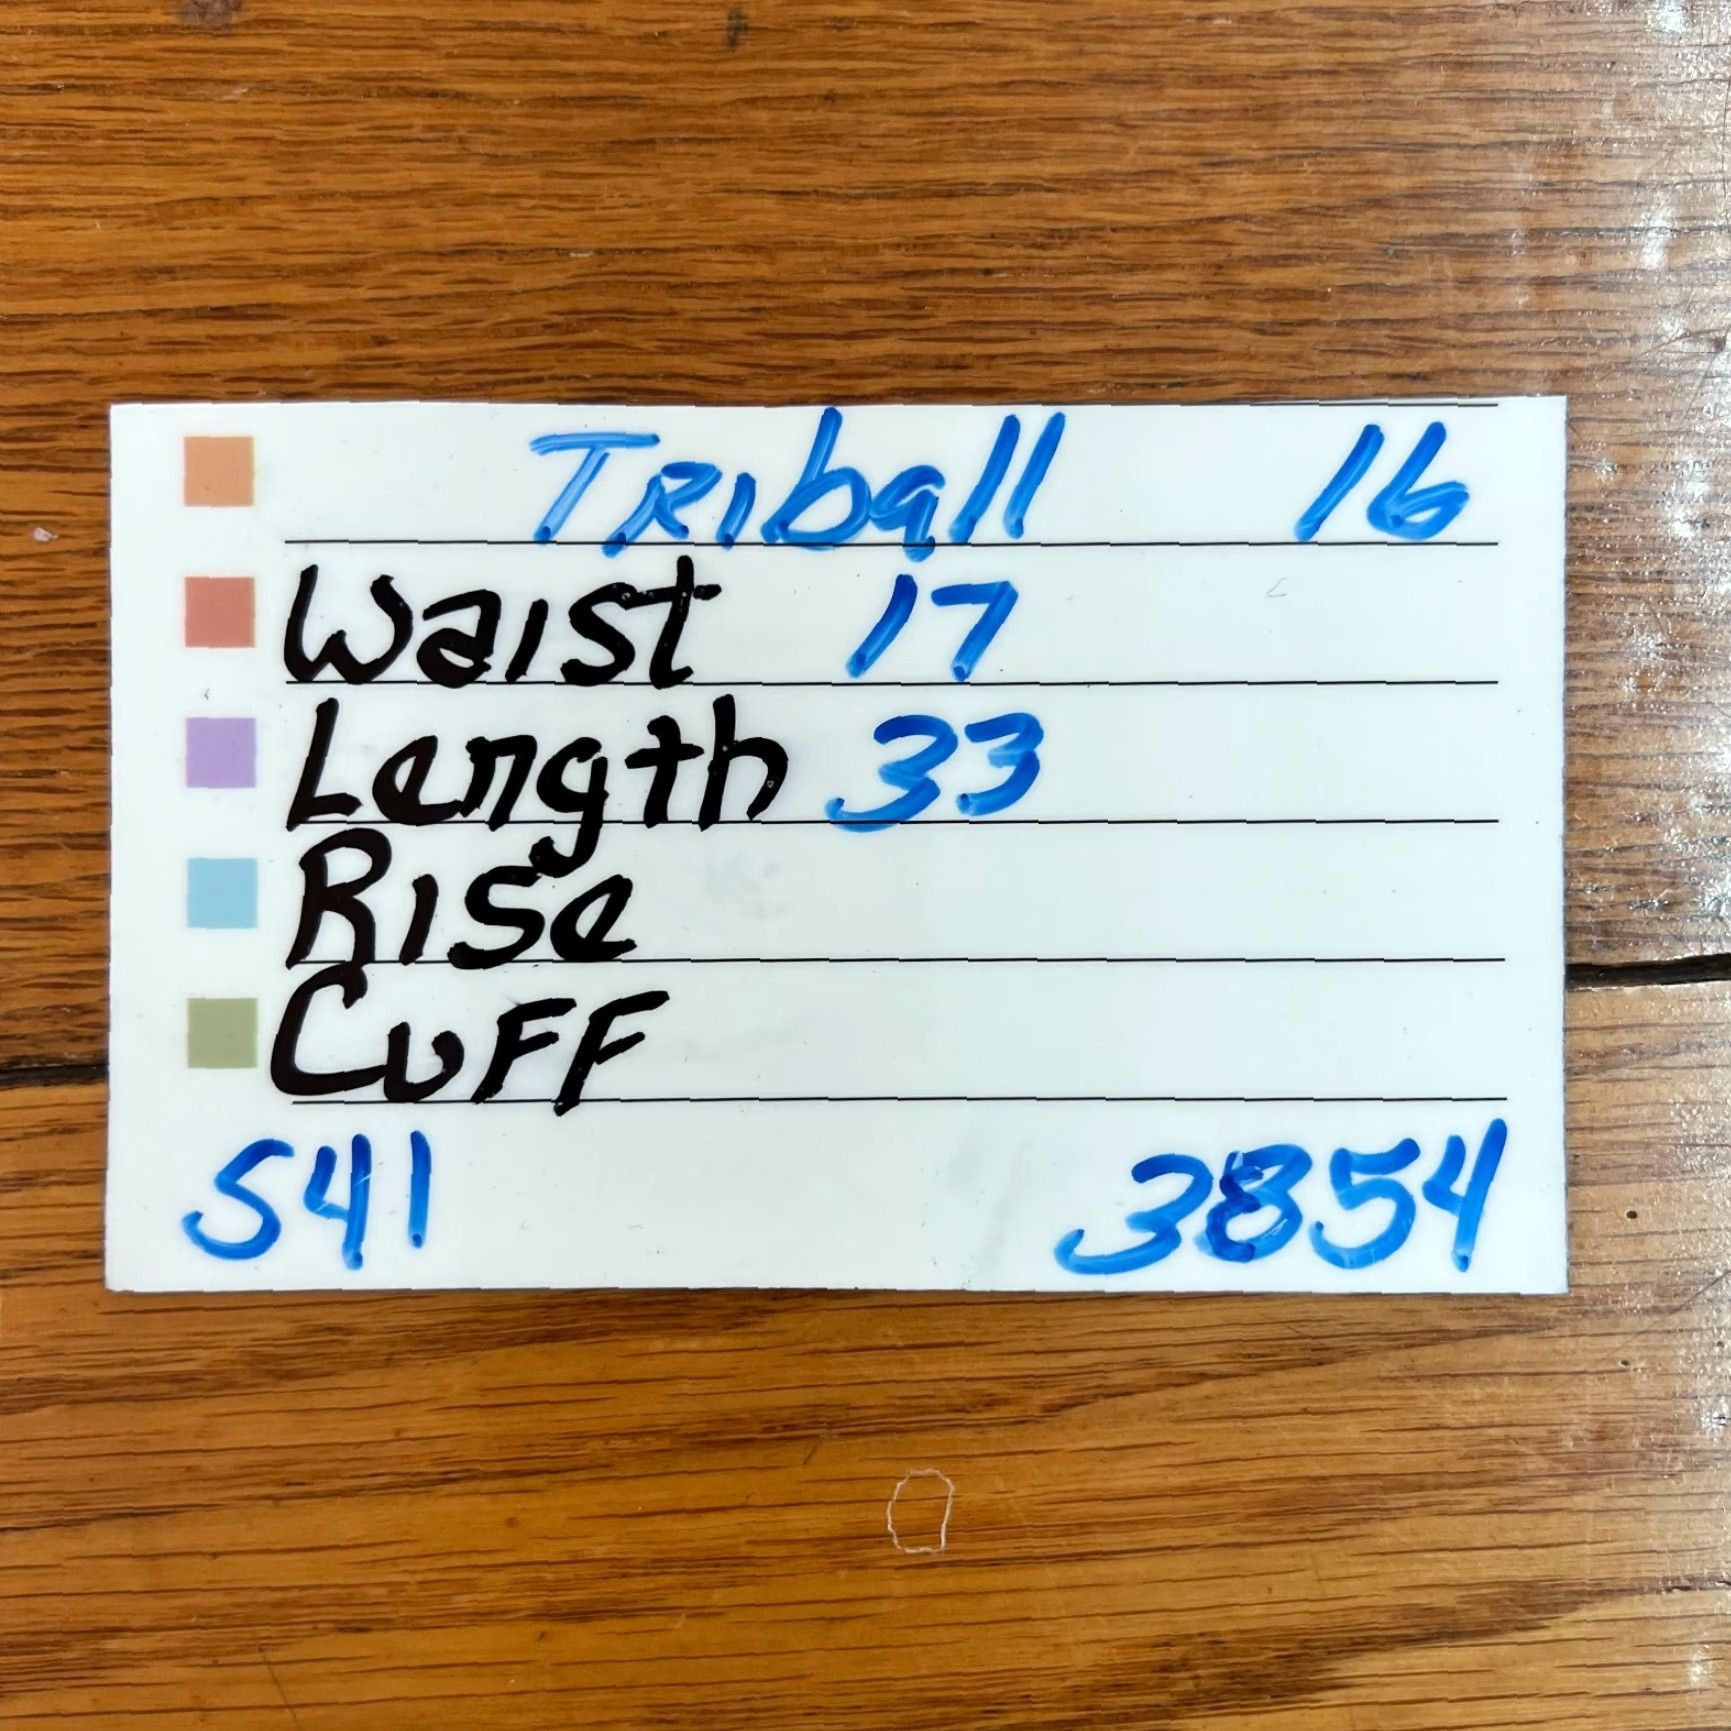 Triball 16
Waist 17
Length 33
Rise
Cuff
S41 3854